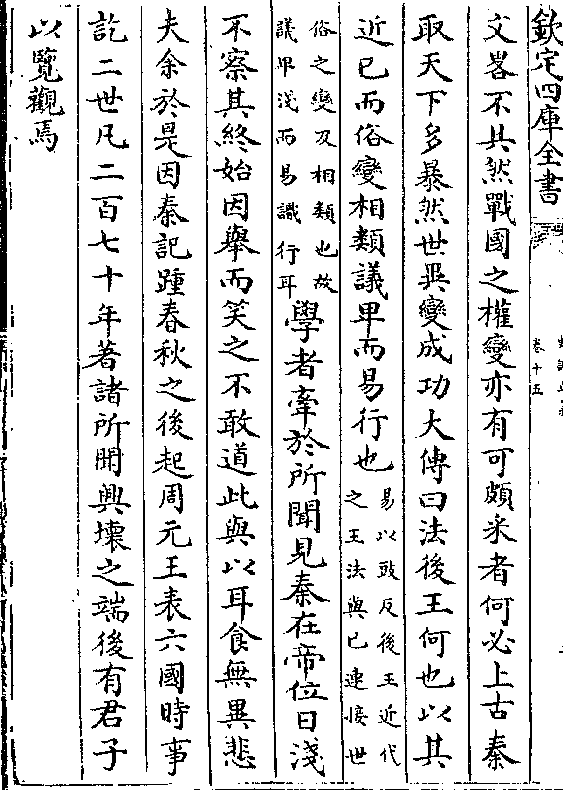 欽定四庫全書
卷十五
文畧不具然戰國之權變亦有可頗采者何必上古秦
取天下多暴然世異變成功大傳曰法後王何也以其
近已而俗變相類議卑而易行也易以豉反後王近代
之王法與已連接世
俗之變及相類也故
議卑淺而易識行耳
學者牽於所聞見秦在帝位日淺
不察其終始因舉而笑之不敢道此與以耳食無異悲
夫余於是因秦記踵春秋之後起周元王表六國時事
訖二世凡二百七十年著諸所聞興壞之端後有君子
以覽觀焉